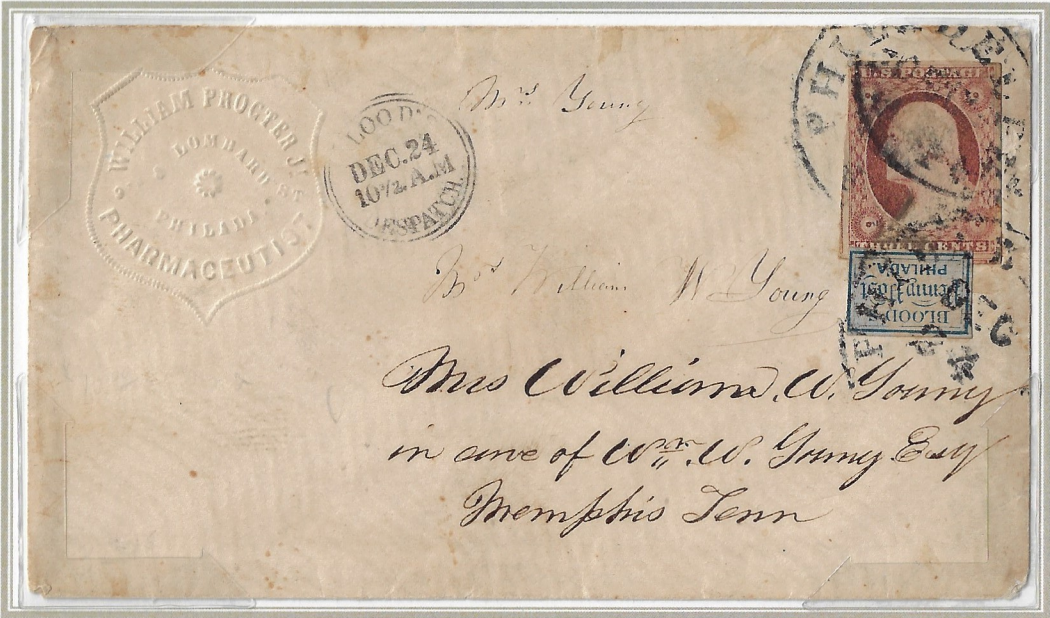 WILLIAM PROCTER Jr
LOMBARD ST
PHILADA.
PHARMACEUTIST
BLOOD'S
DEC.24
10½ A.M
DESPATCH.
Mrs Young
U.S. POSTAGE
THREE CENTS
PHILADELPHIA
BLOOD'S
Penny Post
PHILADA.
Mrs William W Young
Mrs William. W. Young
in care of Wm. W. Young Esq
Memphis Tenn